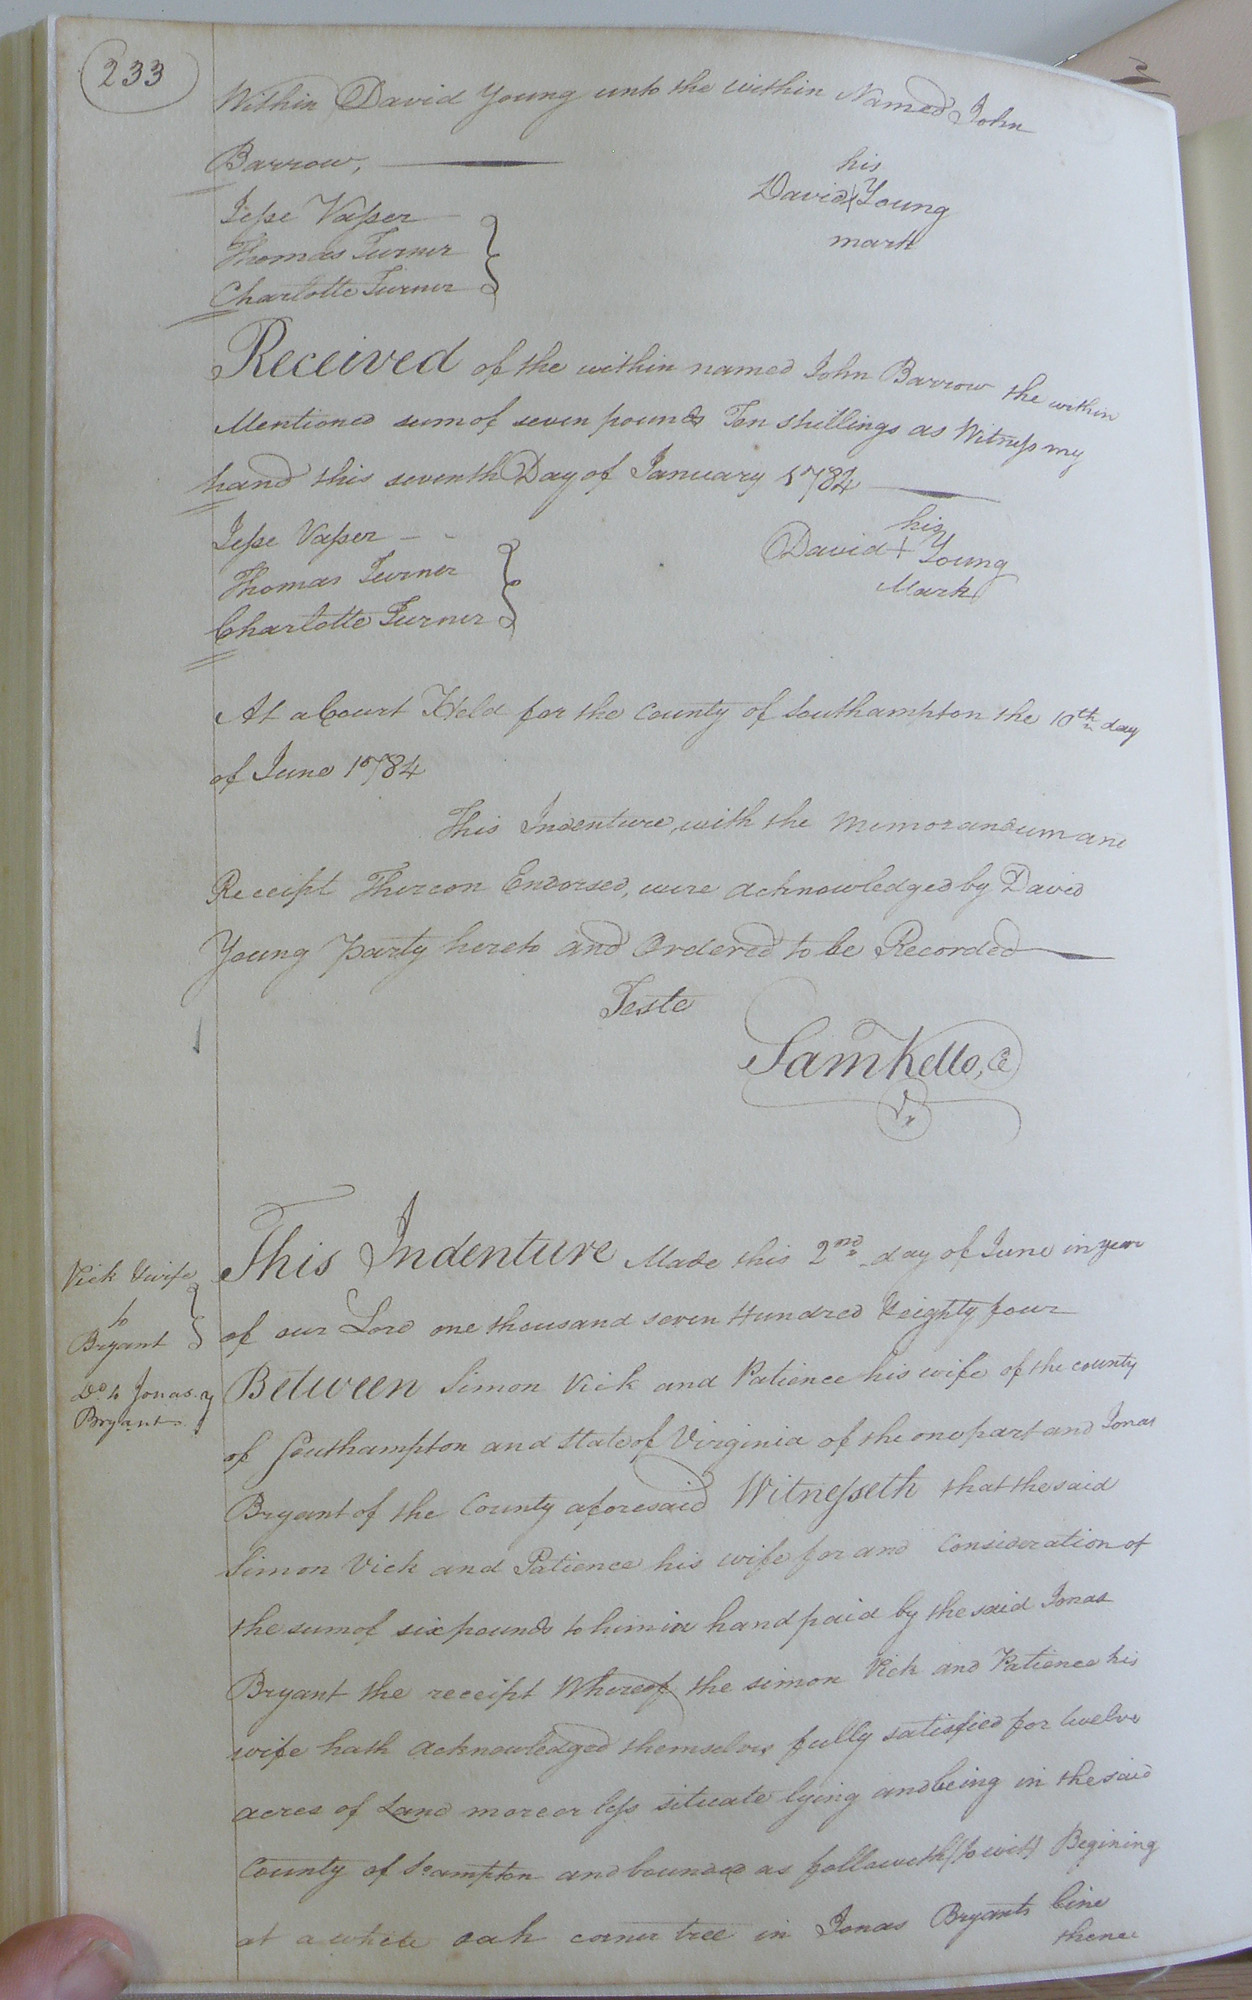 233
Within David Young unto the within Named John
Barrow,
his
David X Young
mark
Jesse Vasser
Thomas Turner
Charlotte Turner
Received of the within named John Barrow the within
Mentioned sum of seven pounds Ten shillings as Witness my
hand this seventh Day of January 1784
Jesse Vasser
Thomas Turner
Charlotte Turner
his
David + Young
Mark
At a Court Held for the County of Southampton the 10th day
of June 1784
This Indenture, with the Memorandum and
Receipt Thereon Endorsed, were acknowledged by David
Young Party hereto and Ordered to be Recorded
Teste
Sam Kello, C
Vick & wife
to
Bryant
Do to Jonas
Bryant
This Indenture Made this 2nd day of June in year
of our Lord one thousand seven Hundred & eighty four
Between Simon Vick and Patience his wife of the county
of Southampton and State of Virginia of the one part and Jonas
Bryant of the County aforesaid Witnesseth that the said
Simon Vick and Patience his wife for and Consideration of
the sum of six pounds to him in hand paid by the said Jonas
Bryant the receipt Whereof the simon Vick and Patience his
wife hath acknowledged themselves fully satisfied for twelve
acres of Land more or less situate lying and being in the said
County of Soampton and bounded as followeth (to wit) Begining
at a white oak corner tree in Jonas Bryants line
thence